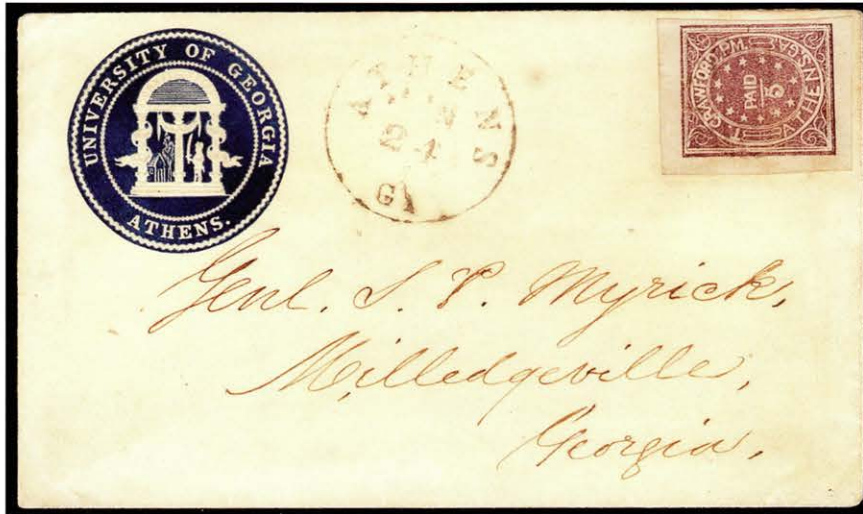 UNIVERSITY OF GEORGIA
ATHENS.
ATHENS
24
GA
T. CRAWFORD, PM.
ATHENS GA
PAID
5
Genl. S. P. Myrick,
Milledgeville,
Georgia.